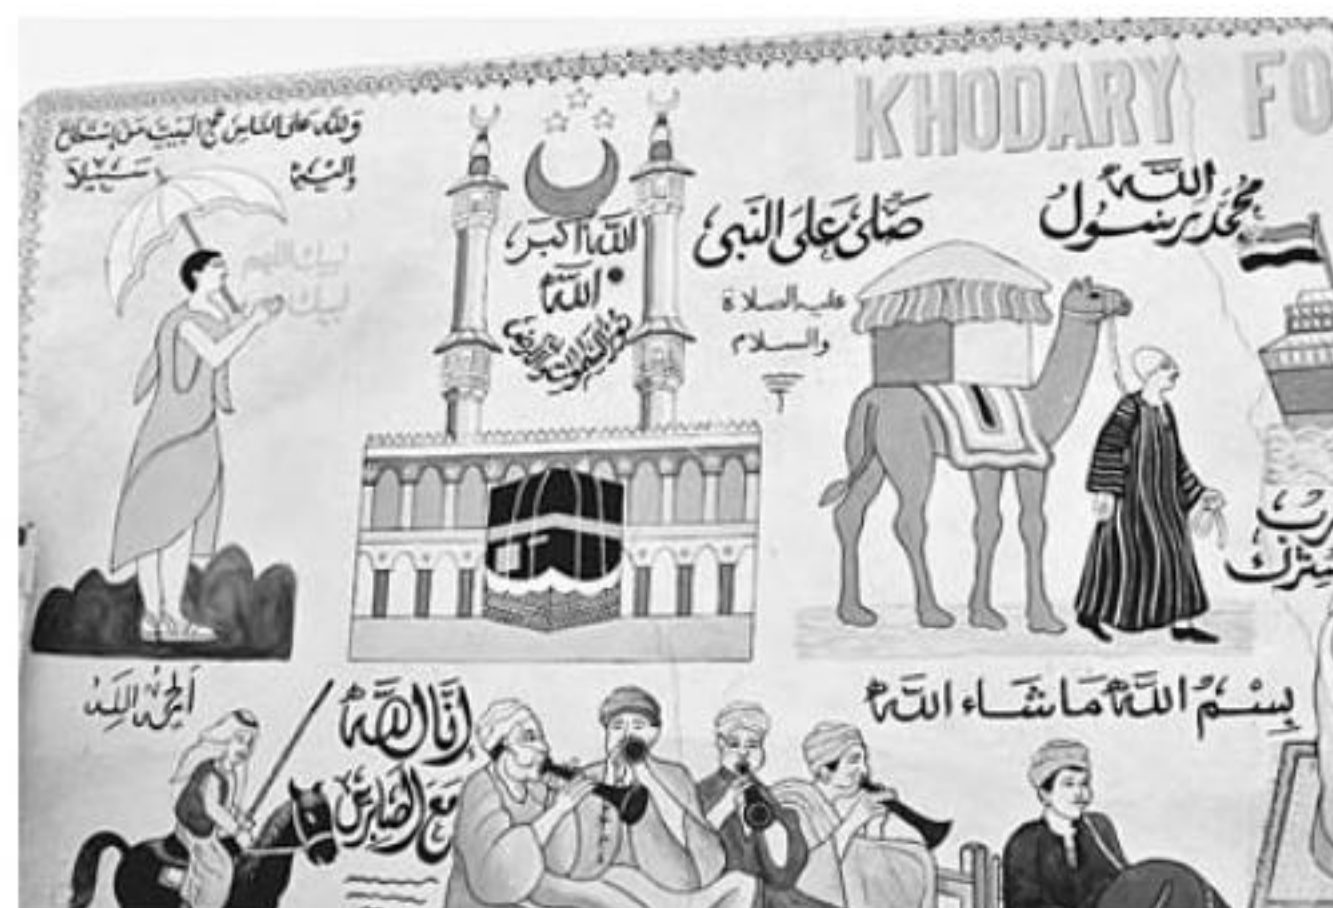 KHODARY FO
ولله على الناس حج البيت من استطاع
إليه سبيلا
لبيك اللهم
لبيك
الله أكبر
الله
صلى على النبى
عليه الصلاة
والسلام
محمد رسول الله
رب
الحمد لله
إن الله
مع الصابرين
بسم الله ما شاء الله